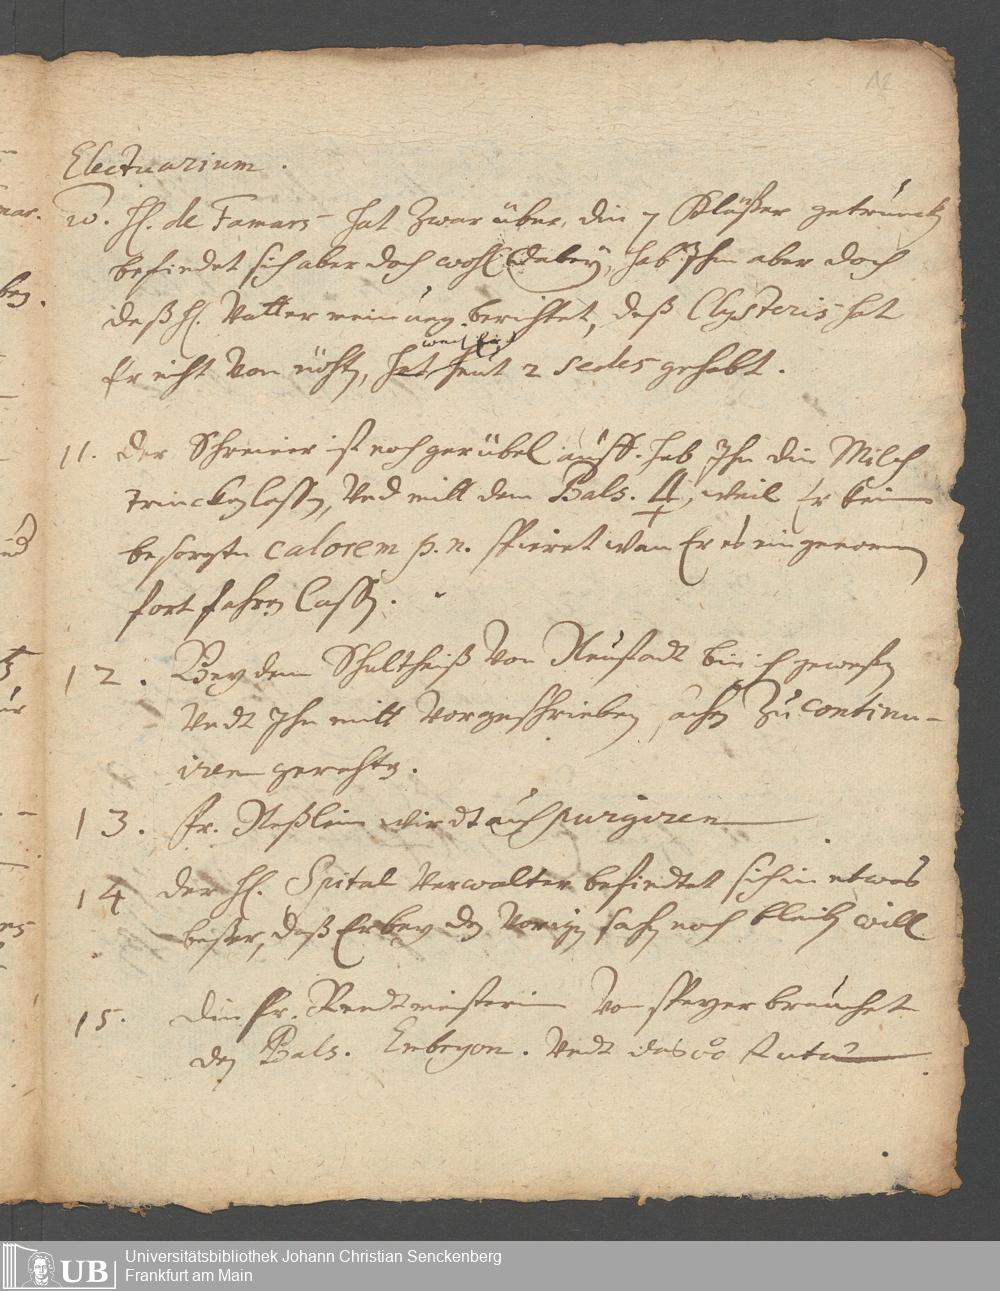 Electuarium.
10. H. de Famars hat zwar über die 7 Gläßer getrunck
befindet sich aber doch wohl dabey, hab Ihm aber doch
deß H. Vatter meinung berichtet, deß Clysteris hat
Er nicht von nöht, weil Er heut 2 sedes gehabt.
11. Der Schreiner ist noch gar übel auff. hab Ihn die Milch
trincken lassen, Und mitt dem Bals. weil Er keine
besorgte calorem p. n. spieret wan Er es eingenomen
fort fahren lassen.
12. Bey dem Schultheiß Von Neustadt bin ich gewesen
Undt Ihn mitt Vorgeschrieben, zu continu-
iren
13. Fr. Neßlein wirdt auch purgiren
14 Der H. Spital Verwalter befindtet sich in etwas
besser, daß Er bey den Vorigen sachen noch bleiben will
15. Die Fr. Rendtmeisterin Von Speyer brauchet
den Bals. Embryon. Undt das
Universitätsbibliothek Johann Christian Senckenberg
Frankfurt am Main
UB